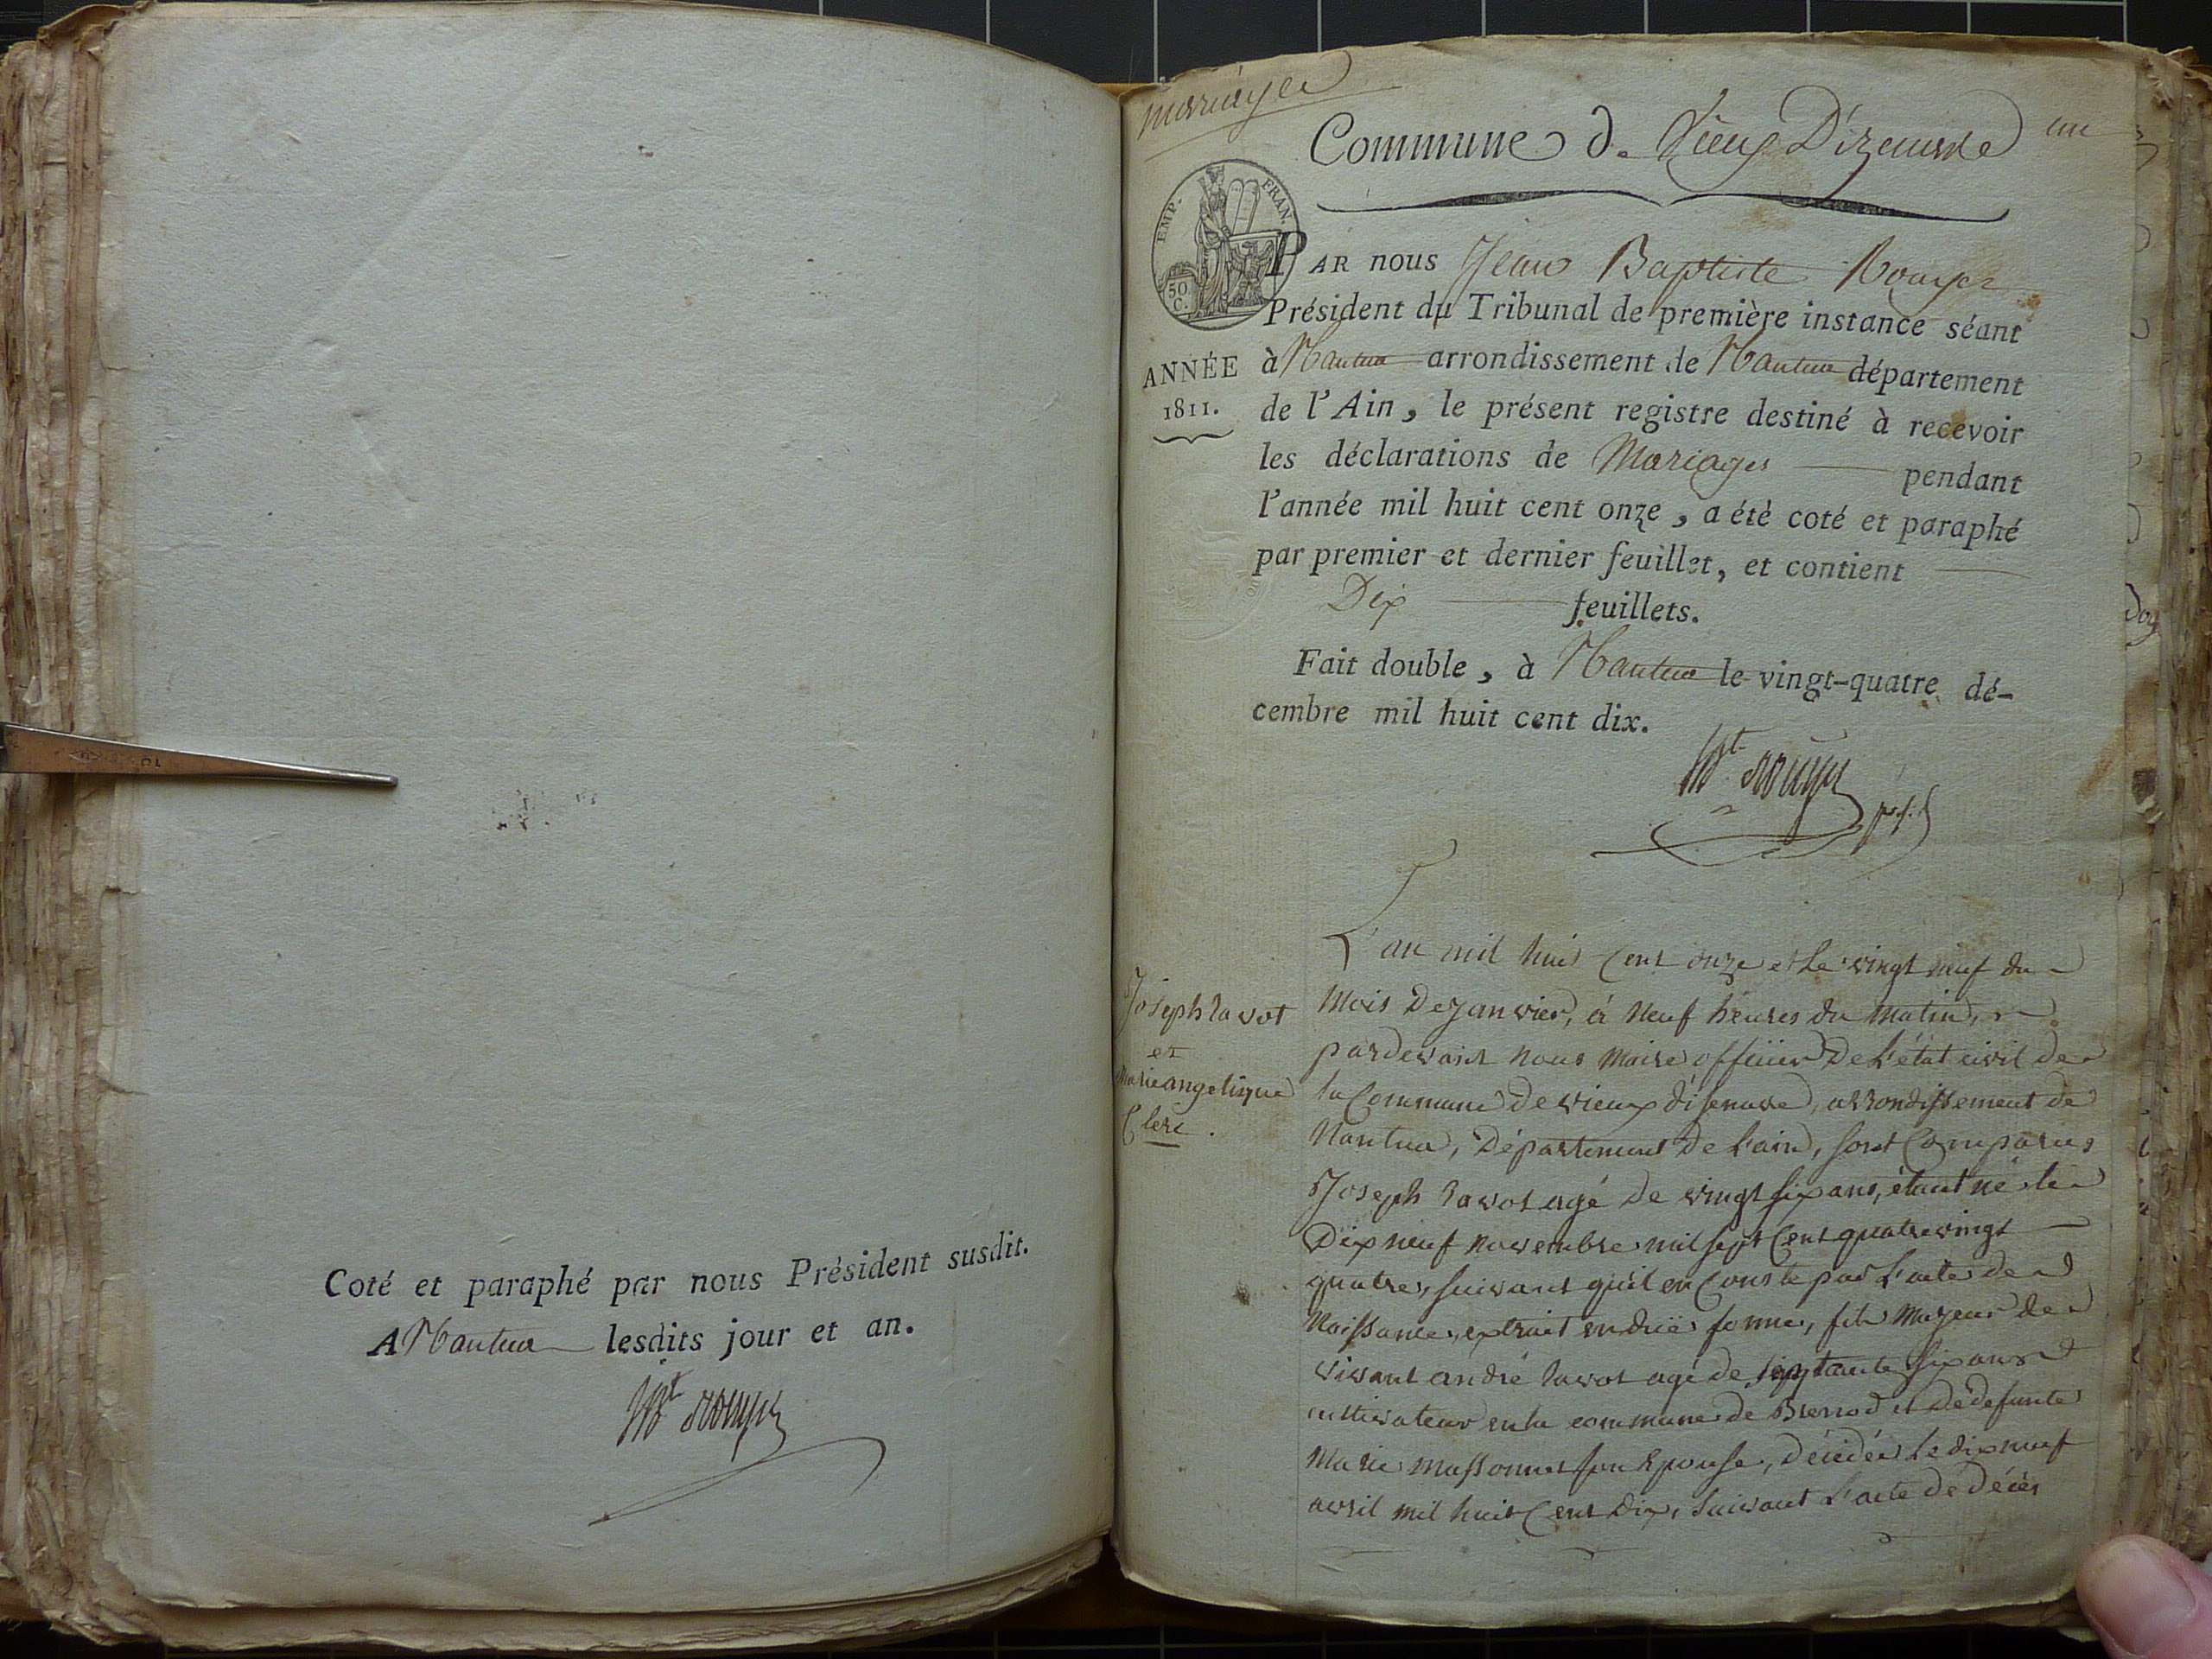 Coté et paraphé par nous Président susdit.
A Nantua lesdits jour et an.
mariages
Commune de Vieux Dizenave
un
EMP. FRAN.
50 C.
PAR nous Jean Baptiste Rouyer
Président du Tribunal de première instance séant
à Nantua arrondissement de Nantua département
ANNÉE
1811.
de l'Ain, le présent registre destiné à recevoir
les déclarations de Mariages pendant
l'année mil huit cent onze, a été coté et paraphé
par premier et dernier feuillet, et contient
Dix feuillets.
Fait double, à Nantua le vingt-quatre dé-
cembre mil huit cent dix.
Joseph ravot
et
Marie angelique
Clerc.
L'an mil huit Cent onze et Le vingt neuf du
Mois De Janvier, á Neuf heures du Matin,
pardevant nous Maire officier De L'état civil de
la Commune de vieux disenave, arrondissement de
Nantua, Département De L'ain, sont Comparus
Joseph ravot agé de vingt six ans, étant né le
Dix neuf novembre mil sept Cent quatre vingt
quatre, suivant qu'il en Conste par L'acte de
Naissance, extrait en düe forme, fils Majeur de
vivant andré ravot agé de septante six ans
cultivateur en la commune de Brenod et De defunte
Marie massonnet son Epouse, décédée Le dix neuf
avril mil huit Cent Dix, suivant L'acte de décès